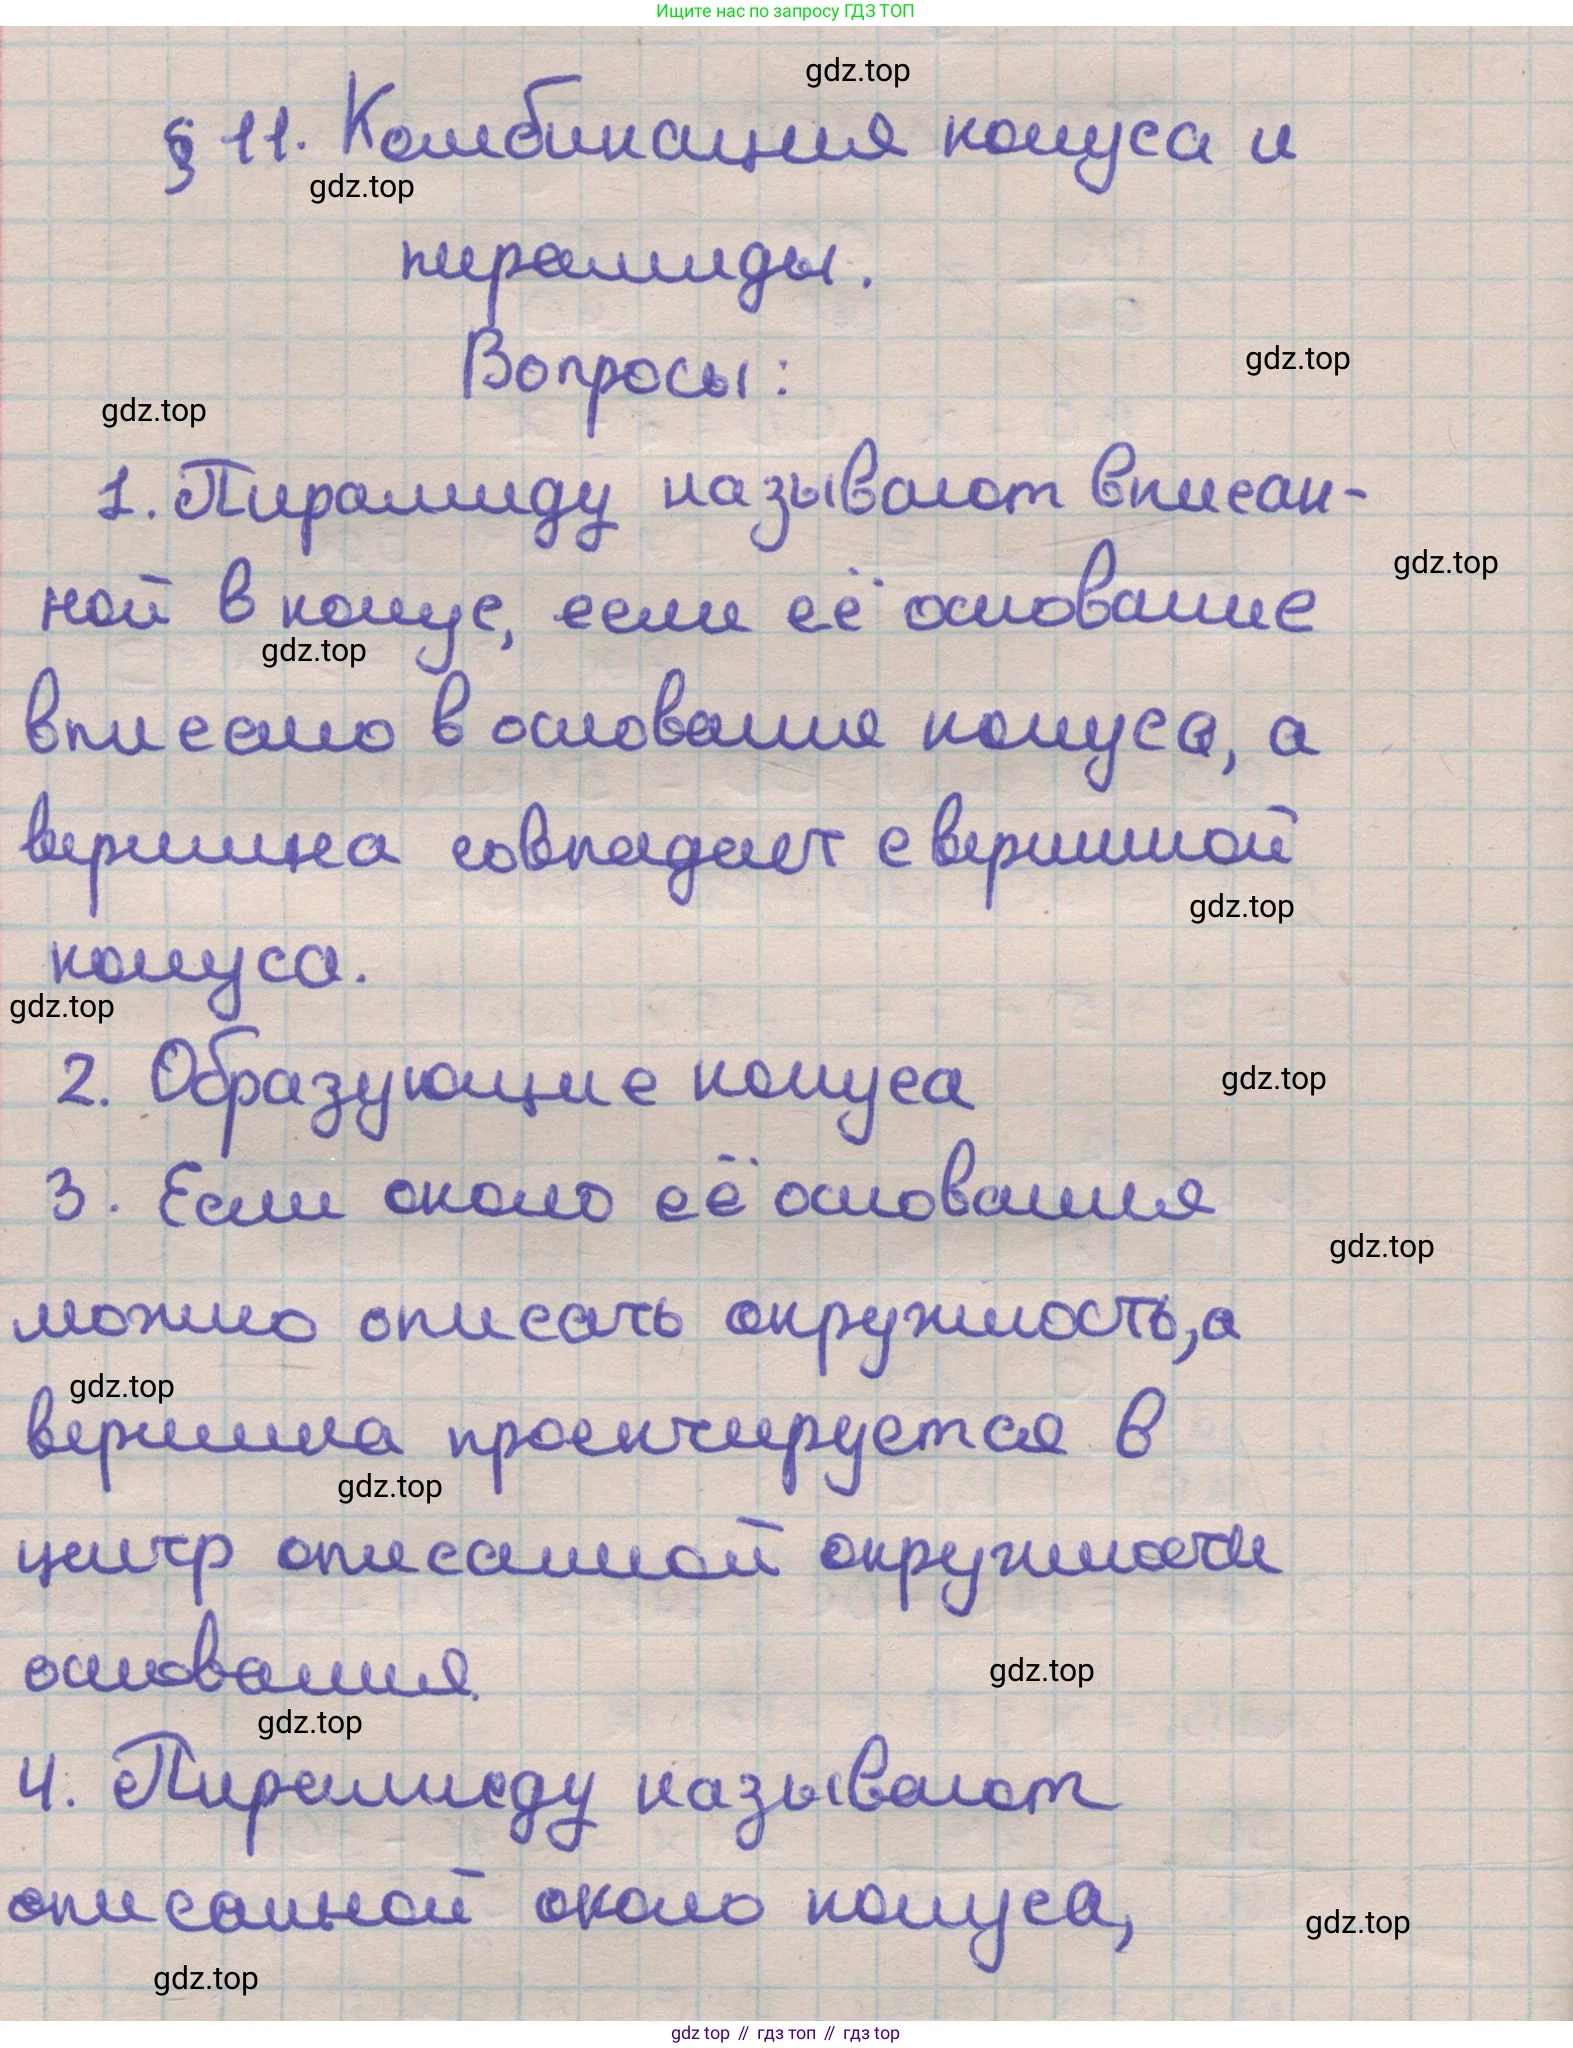 Ищите нас по запросу ГДЗ ТОП
gdz.top
§ 11. Комбинация конуса и
gdz.top
пирамиды.
Вопросы:
gdz.top
gdz.top
1. Пирамиду называют вписан-
gdz.top
ной в конус, если её основание
gdz.top
вписано в основания конуса, а
вершина совпадает с вершиной
gdz.top
конуса.
gdz.top
2. Образующие конуса
gdz.top
3. Если около её основания
gdz.top
можно описать окружность, а
gdz.top
вершина проектируется в
gdz.top
центр описанной окружности
основания.
gdz.top
gdz.top
4. Пирамиду называют
описанной около конуса,
gdz.top
gdz.top
gdz top // гдз топ // гдз top